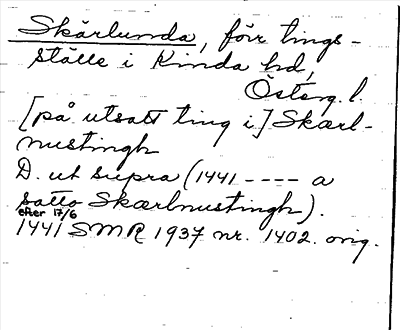 Skärlunda, förr tings-
ställe i Kinda hd,
Österg. l.
[på utsatt ting i] Skærl-
nustingh
D. ut supra (1441 ---- a
satto Skærlnustingh).
efter 17/6
1441 SMR 1937 nr. 1402. orig.